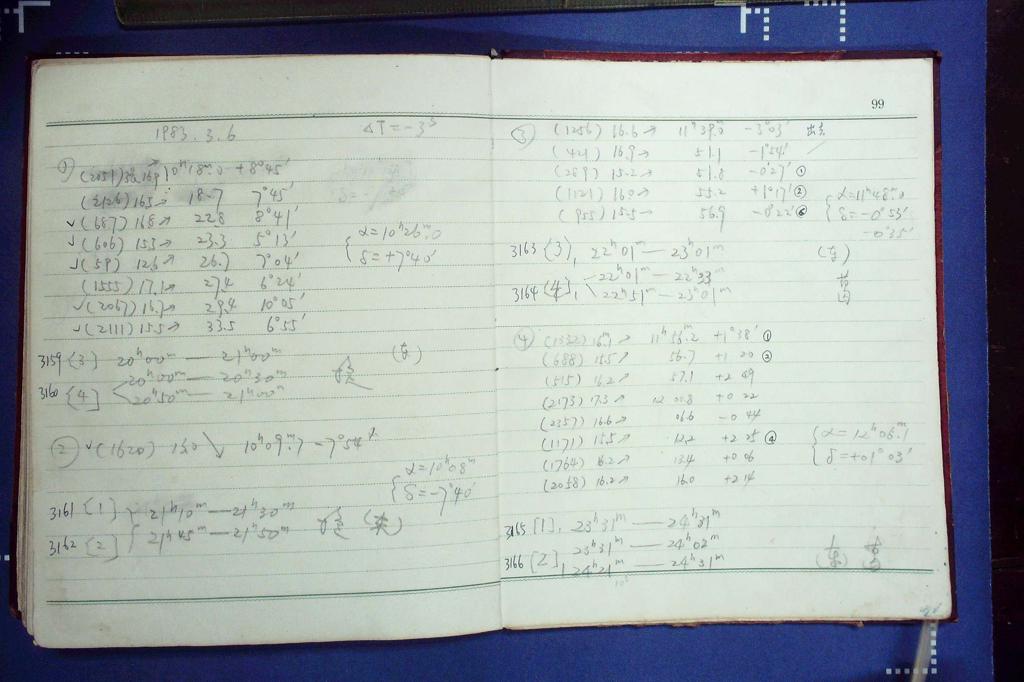 1983.3.6 ΔT=-3ˢ
① (2051) 16.9 10ʰ18ᵐ.0 +8°45′
(2126) 16.5→ 18.7 7°45′
√(687) 16.8→ 22.8 8°41′
√(606) 15.3→ 23.3 5°13′
√(59) 12.6→ 26.7 7°04′
(1555) 17.1→ 27.4 6°24′
√(2067) 16.7→ 29.4 10°05′
√(2111) 15.5→ 33.5 6°55′
{α=10ʰ26ᵐ.0
δ=+7°40′
3159 {3} 20ʰ00ᵐ—21ʰ00ᵐ
3160 {4} 20ʰ00ᵐ—20ʰ30ᵐ
20ʰ50ᵐ—21ʰ00ᵐ
② √(1620) 13.0↘ 10ʰ09ᵐ.7 -7°54′
{α=10ʰ08ᵐ
δ=-7°40′
3161 {1} 21ʰ10ᵐ—21ʰ30ᵐ
3162 {2} 21ʰ45ᵐ—21ʰ50ᵐ
99
③ (1256) 16.6→ 11ʰ39ᵐ.0 -3°03′
(421) 16.9→ 51.1 -1°54′
(289) 15.2→ 51.8 -0°27′ ①
(1121) 16.0→ 55.2 +1°17′ ②
(955) 15.5→ 56.9 -0°22′
{α=11ʰ48ᵐ.0
δ=-0°53′
-0°35′
3163 {3}, 22ʰ01ᵐ—23ʰ01ᵐ
3164 {4}, 22ʰ01ᵐ—22ʰ33ᵐ
22ʰ51ᵐ—23ʰ01ᵐ
④ (1332) 16.7→ 11ʰ53ᵐ.2 +1°38′ ①
(688) 15.5→ 56.7 +1 20 ②
(515) 16.2→ 57.1 +2 49
(2173) 17.3→ 12 01.8 +0 22
(2357) 16.6→ 06.6 -0 44
(1171) 15.5→ 12.2 +2 05 ④
(1764) 16.2→ 13.4 +0 06
(2058) 16.2→ 16.0 +2 14
{α=12ʰ06ᵐ.1
δ=+01°03′
3165 [1], 23ʰ31ᵐ—24ʰ31ᵐ
3166 [2], 23ʰ31ᵐ—24ʰ02ᵐ
24ʰ21ᵐ—24ʰ31ᵐ